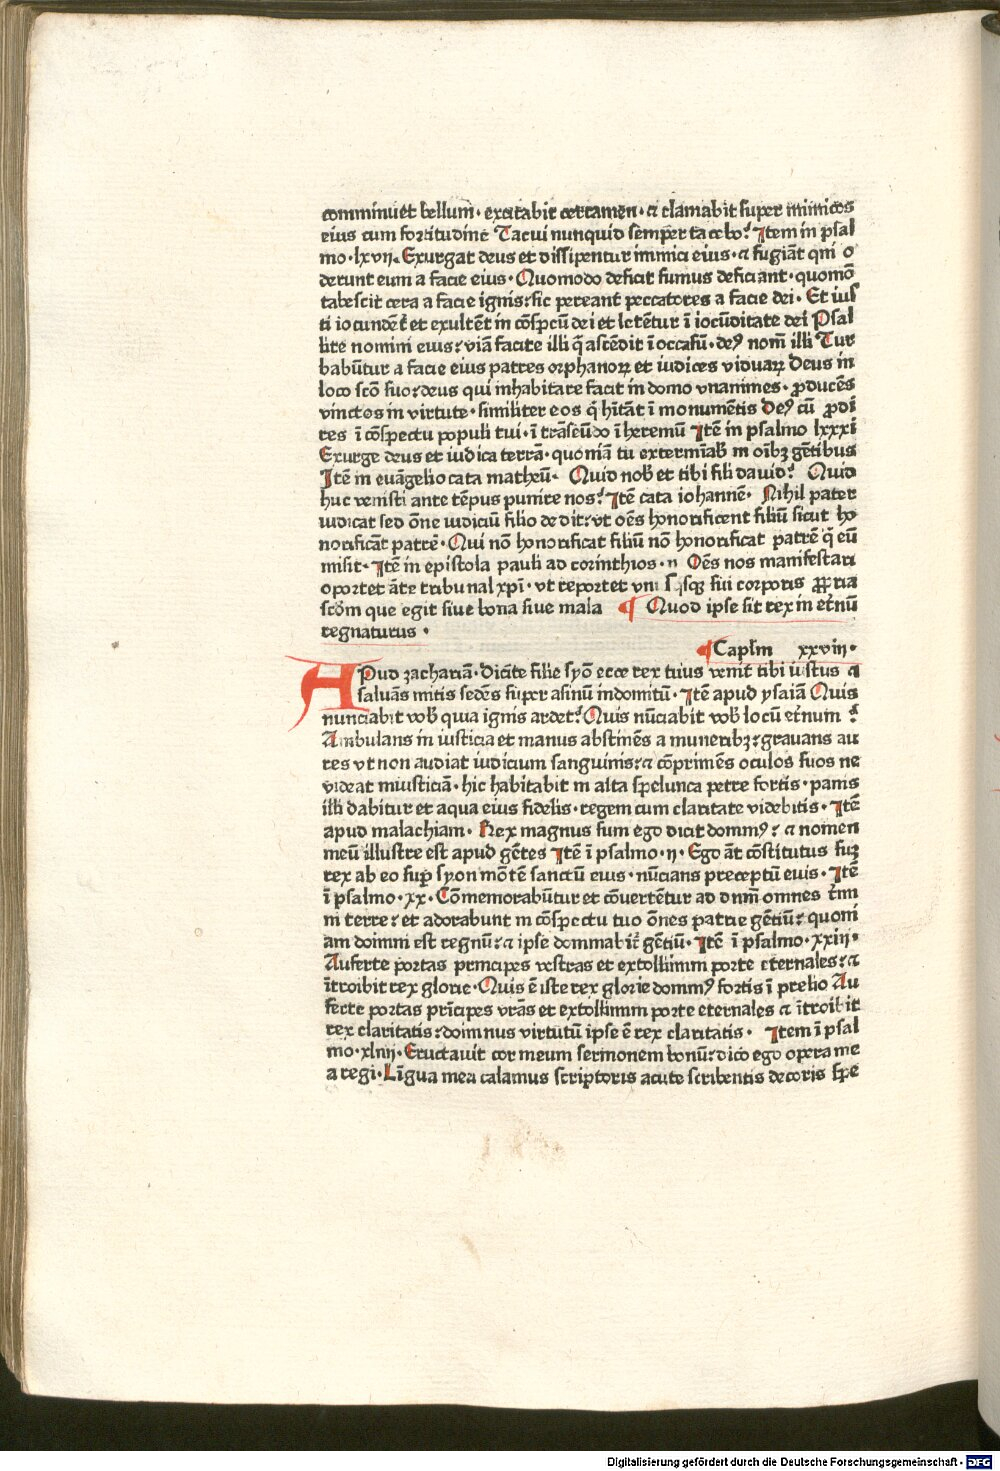 comminuet bellum· excitabit certamen· ⁊ clamabit super inimicos
eius cum fortitudine Tacui nunquid semper tacebo? Item in psal
mo·lxvii· Exurgat deus et dissipentur inimici eius·⁊ fugiāt qui o
derunt eum a facie eius· Quomodo deficit fumus deficiant·quomō
tabescit cera a facie ignis:sic pereant peccatores a facie dei· Et ius
ti iocundēt̄ et exultēt in cōspcū dei et letētur ī iocūditate dei Psal
lite nomini eius:viā facite illi q̄ ascēdit ī occasū·deꝰ nom̄ illi Tur
babūtur a facie eius patres orphanoꝝ et iudices viduaꝝ Deus in
loco scō suo:deus qui inhabitare facit in domo vnanimes· ꝓducēs
vinctos in virtute·similiter eos q̄ hītāt ī monumētis Deꝰ cū ꝓdi
res ī cōspectu populi tui·ī trāseūdo ī heremū Itē in psalmo lxxxi
Exurge deus et iudica terrā·quoniā tu extermīab̄ in oībꝫ gētibus
Itē in euāgelio cata matheū· Quid nob̄ et tibi fili dauid? Quid
huc venisti ante tēpus punire nos? Itē cata iohannē· Nihil pater
iudicat sed ōne iudiciū filio dedit:vt oēs honorificent filiū sicut ho
norificāt patrē·Qui nō honorificat filiū nō honorificat patrē q̄ eū
misit·Itē in epistola pauli ad corinthios·ii Oēs nos manifestari
oportet āte tribunal xp̄i·vt reportet vnusqsqꝫ sui corporis ꝓpria
scd̄m que egit siue bona siue mala ¶ Quod ipse sit rex in et̄nū
regnaturus·
¶Capl̄m xxviii·
APud zachariā·Dicite filie syō ecce rex tuus venit tibi iustus ⁊
saluās mitis sedēs super asinū indomitū·Itē apud ysaiā Quis
nunciabit vob̄ quia ignis ardet?Quis nūciabit vob̄ locū et̄num ?
Ambulans in iusticia et manus abstinēs a muneribꝫ:grauans au
res vt non audiat iudicium sanguinis:⁊ cōprimēs oculos suos ne
videat iniusticiā·hic habitabit in alta spelunca petre fortis·panis
illi dabitur et aqua eius fidelis·regem cum claritate videbitis·Itē
apud malachiam· Rex magnus sum ego dicit dominꝰ: ⁊ nomen
meū illustre est apud gētes Itē ī psalmo·ii· Ego āt cōstitutus suꝫ
rex ab eo sup̄ syon mōtē sanctū eius·nūcians preceptū eius·Itē
ī psalmo·xx·Cōmemorabūtur et cōuertētur ad dnm̄ omnes t̄mi
ni terre:et adorabunt in cōspectu tuo ōnes patrie gētiū:quoni
am domini est regnū:⁊ ipse dominabit̄ gētiū·Itē ī psalmo·xxiii·
Auferte portas principes vestras et extollimini porte eternales:⁊
ītroibit rex glorie·Quis ē iste rex glorie dominꝰ fortis ī prelio Au
ferte portas prīcipes vrās et extollimini porte eternales ⁊ ītroibit
rex claritatis:dominus virtutū ipse ē rex claritatis· Item ī psal
mo·xliij·Eructauit cor meum sermonem bonū:dicō ego opera me
a regi·Līgua mea calamus scriptoris acute scribentis decoris spe
Digitalisierung gefördert durch die Deutsche Forschungsgemeinschaft - DFG